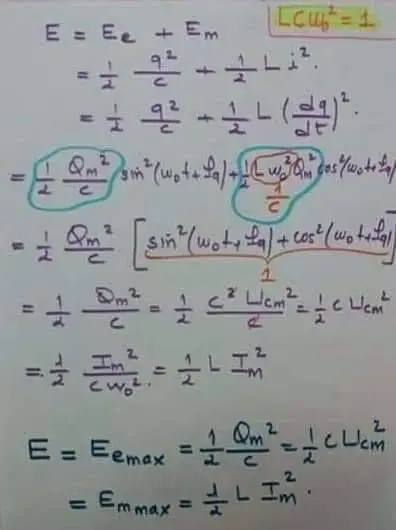 L C ω₀² = 1
E = Ee + Em
= 1/2 q²/c + 1/2 L i².
= 1/2 q²/c + 1/2 L (dq/dt)².
= 1/2 Qm²/c sin²(ω₀t+φq) + 1/2 L ω₀² Qm² cos²(ω₀t+φq)
1/c
= 1/2 Qm²/c [sin²(ω₀t+φq) + cos²(ω₀t+φq)]
1
= 1/2 Qm²/c = 1/2 c² Ucm²/c = 1/2 c Ucm²
= 1/2 Im²/cω₀² = 1/2 L Im²
E = Ee max = 1/2 Qm²/c = 1/2 c Ucm²
= Em max = 1/2 L Im².